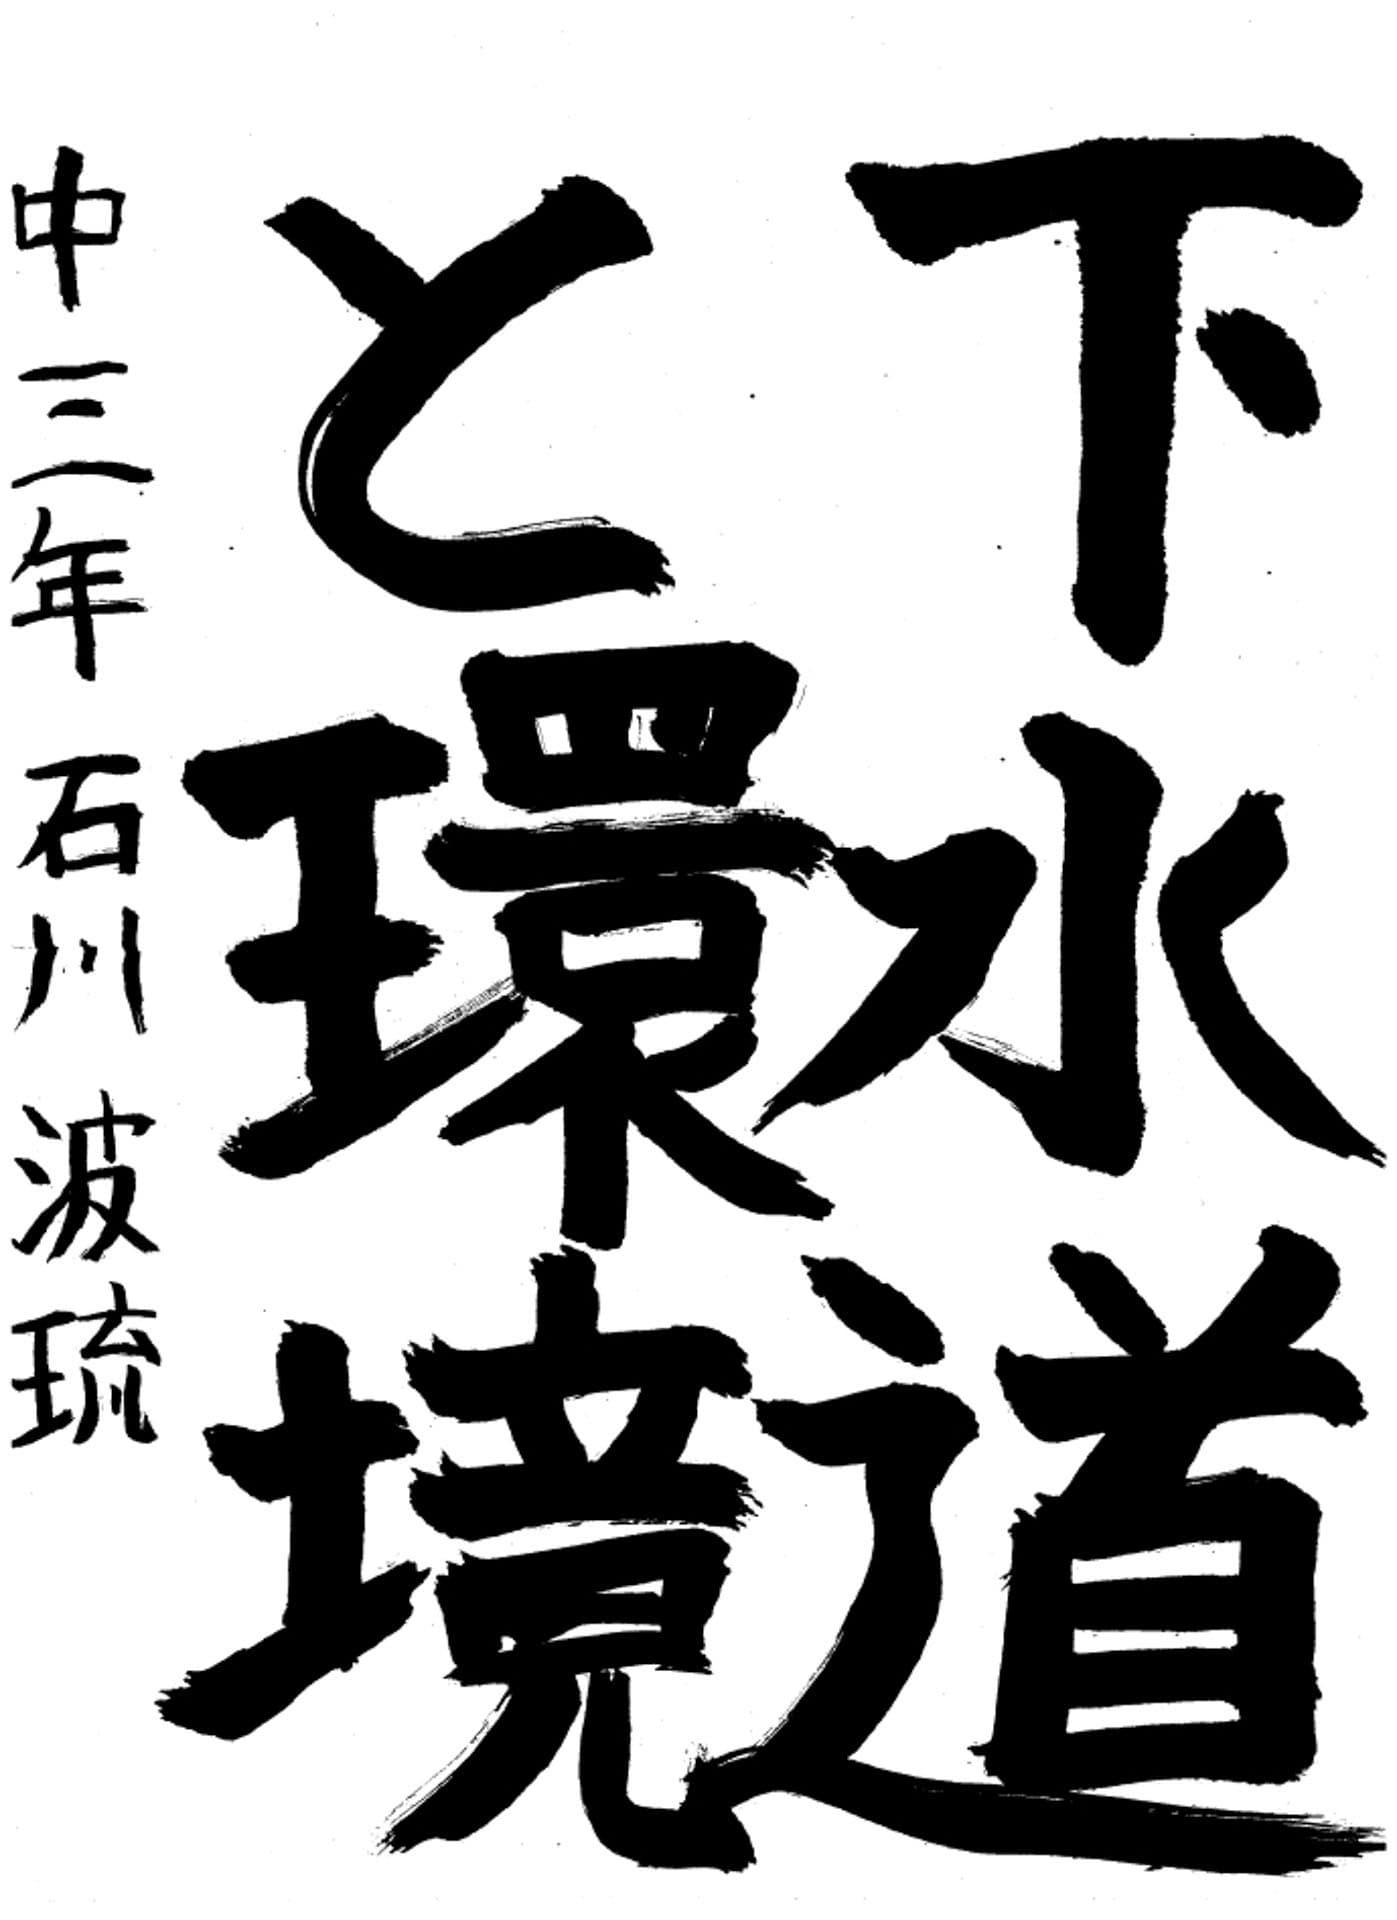 下水道
と環境
中三年 石川 波琉